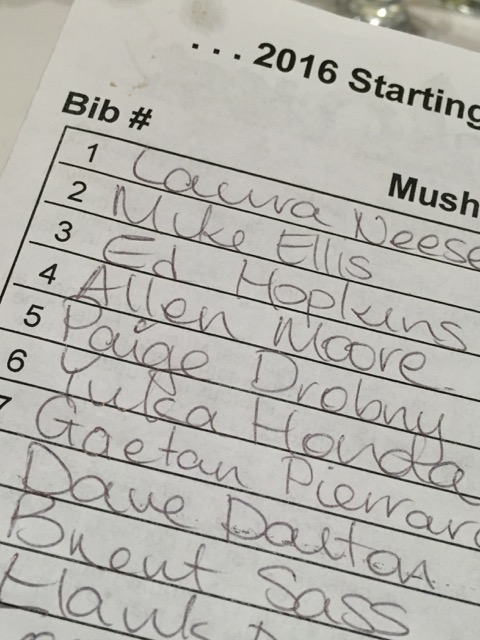 ... 2016 Starting
Bib #
Mush
1 Laura Neese
2 Mike Ellis
3 Ed Hopkins
4 Allen Moore
5 Paige Drobny
6 Yuka Honda
7 Gaetan Pierrard
Dave Dalton
Brent Sass
Hank